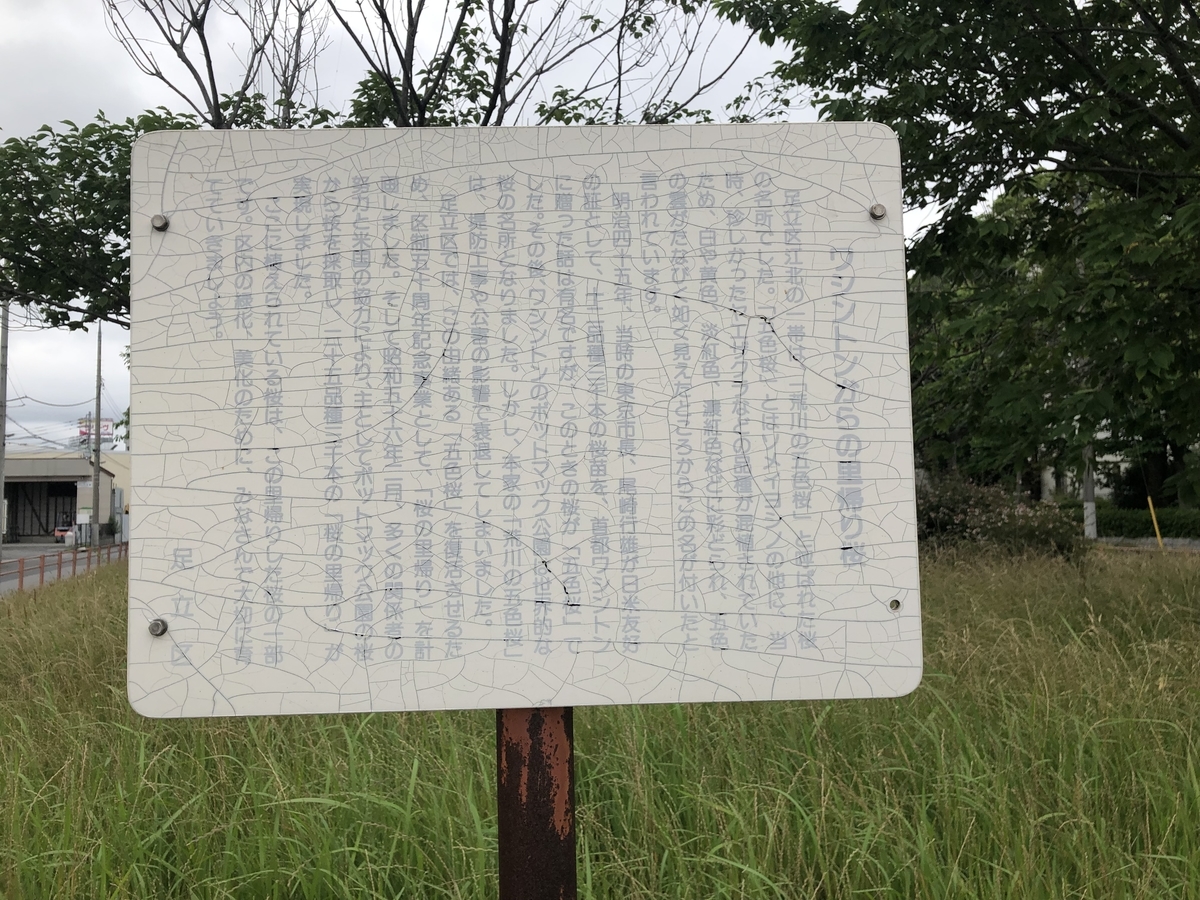 ワシントンからの里帰り桜
足立区江北の一帯は、「荒川の五色桜」とよばれた桜
の名所でした。「五色桜」とはソメイヨシノの他に、当
時、珍しかったサトザクラなどの品種が植えられていた
ため、白や黄色、淡紅色、濃紅色などに彩どられ、五色
の雲がたなびく如く見えたところからこの名が付いたと
言われています。
明治四十五年、当時の東京市長、尾崎行雄が日米友好
の証として、十二品種三千本の桜苗を、首都ワシントン
に贈った話は有名ですが、このときの桜が「五色桜」で
した。その後、ワシントンのポトマック公園は世界的な
桜の名所となりました。しかし、本家の「荒川の五色桜」
は、堤防工事や公害の影響で衰退してしまいました。
足立区では、この由緒ある「五色桜」を復活させるた
め、区制五十周年記念事業として、「桜の里帰り」を計
画しました。そして昭和五十六年二月、多くの関係者の
努力と米国の協力により、主としてポトマック公園の桜
から枝を採取し、三十五品種三千本の「桜の里帰り」が
実現しました。
ここに植えられている桜は、この里帰りした桜の一部
です。区内の緑化、美化のために、みなさんで大切に育
てていきましょう。
足立区